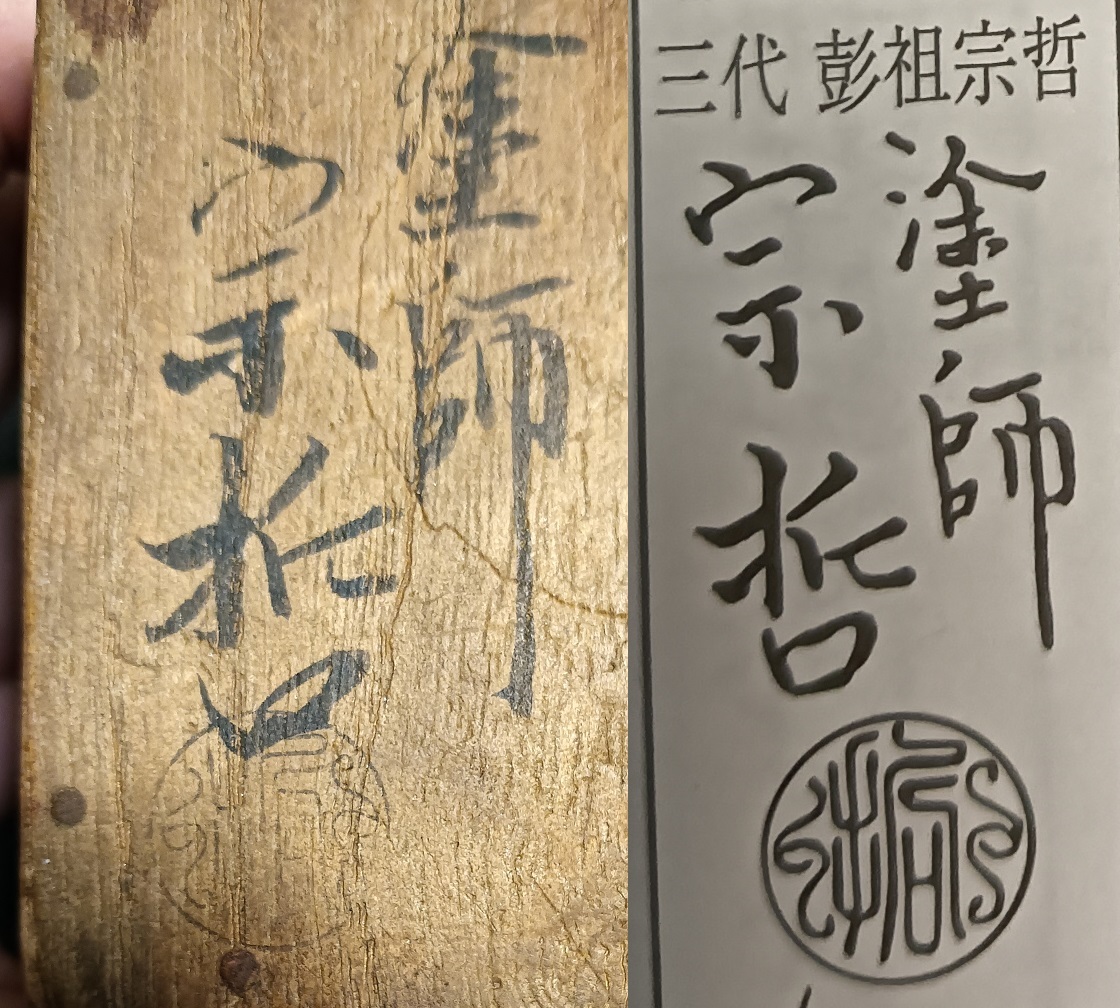 塗師
宗哲
三代 彭祖宗哲
塗師
宗哲
哲